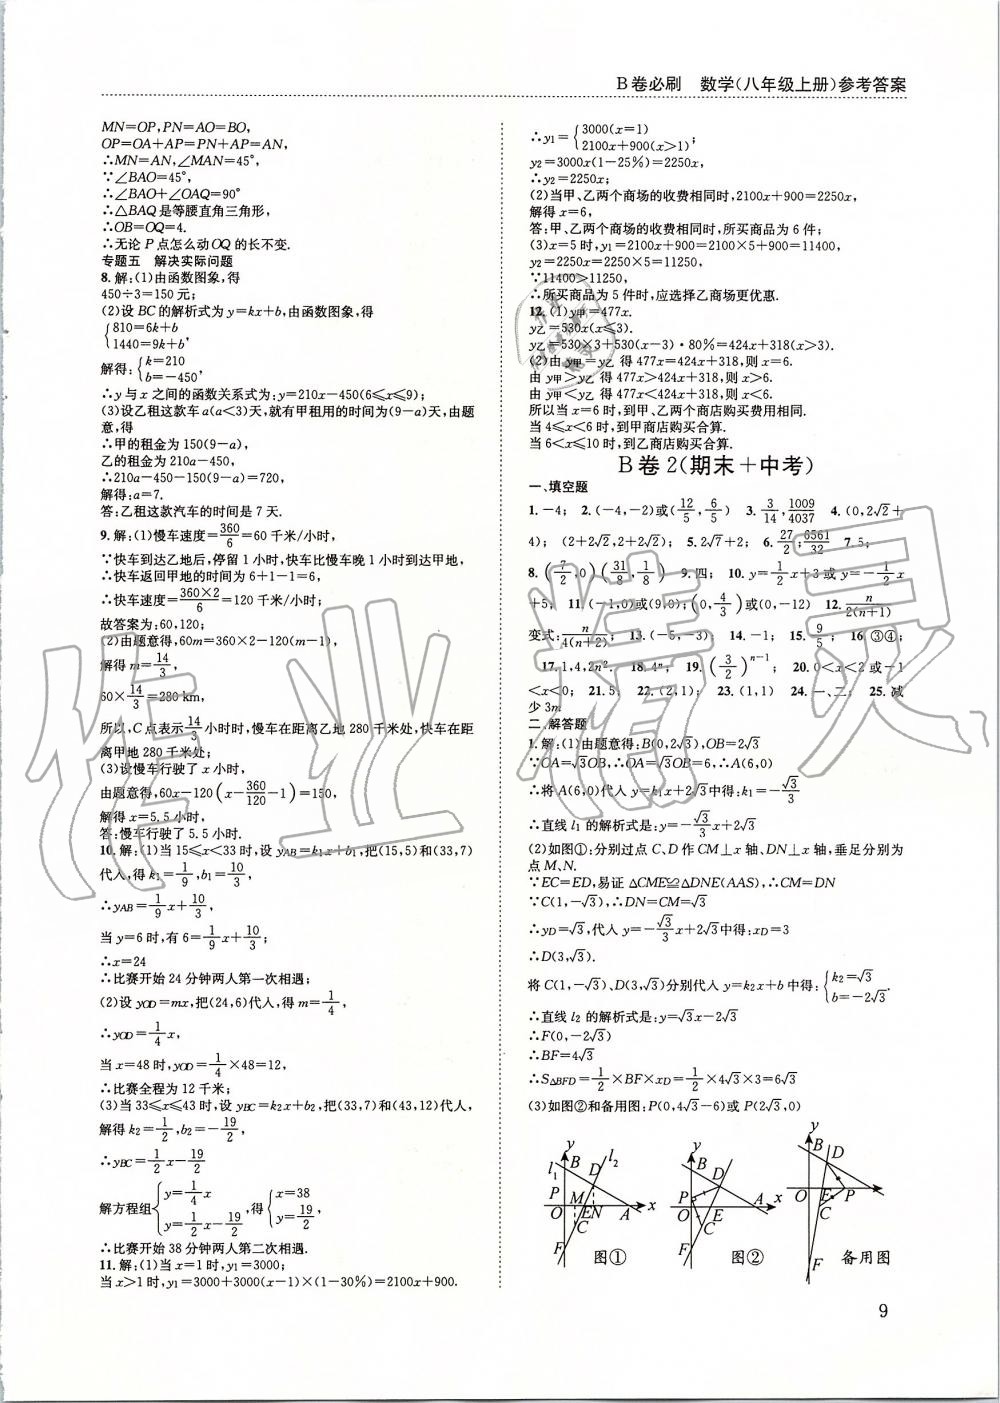 B卷必刷 数学(八年级上册)参考答案
MN=OP,PN=AO=BO,
OP=OA+AP=PN+AP=AN,
∴MN=AN,∠MAN=45°,
∵∠BAO=45°,
∴∠BAO+∠OAQ=90°
∴△BAQ是等腰直角三角形,
∴OB=OQ=4.
∴无论P点怎么动OQ的长不变.
专题五 解决实际问题
8.解:(1)由函数图象,得
450÷3=150元;
(2)设BC的解析式为y=kx+b,由函数图象,得
{810=6k+b
1440=9k+b'
解得:{k=210
b=-450'
∴y与x之间的函数关系式为:y=210x-450(6≤x≤9);
(3)设乙租这款车a(a<3)天,就有甲租用的时间为(9-a)天,由题
意,得
∴甲的租金为150(9-a),
乙的租金为210a-450,
∴210a-450-150(9-a)=720,
解得:a=7.
答:乙租这款汽车的时间是7天.
9.解:(1)慢车速度=360/6=60千米/小时,
∵快车到达乙地后,停留1小时,快车比慢车晚1小时到达甲地,
∴快车返回甲地的时间为6+1-1=6,
∴快车速度=360×2/6=120千米/小时,
故答案为:60,120;
(2)由题意得,60m=360×2-120(m-1),
解得m=14/3,
60×14/3=280 km,
所以,C点表示14/3小时时,慢车在距离乙地280千米处,快车在距
离甲地280千米处;
(3)设慢车行驶了x小时,
由题意得,60x-120(x-360/120-1)=150,
解得x=5.5小时.
答:慢车行驶了5.5小时.
10.解:(1)当15≤x<33时,设yAB=k₁x+b₁,把(15,5)和(33,7)
代人,得k₁=1/9,b₁=10/3,
∴yAB=1/9x+10/3,
当y=6时,有6=1/9x+10/3;
∴x=24
∴比赛开始24分钟两人第一次相遇;
(2)设yOD=mx,把(24,6)代人,得m=1/4,
∴yOD=1/4x,
当x=48时,yOD=1/4×48=12,
∴比赛全程为12千米;
(3)当33≤x≤43时,设yBC=k₂x+b₂,把(33,7)和(43,12)代人,
解得k₂=1/2,b₂=-19/2,
∴yBC=1/2x-19/2
解方程组{y=1/4x
y=1/2x-19/2,得{x=38
y=19/2,
∴比赛开始38分钟两人第二次相遇.
11.解:(1)当x=1时,y₁=3000;
当x>1时,y₁=3000+3000(x-1)×(1-30%)=2100x+900.
∴y₁={3000(x=1)
2100x+900(x>1);
y₂=3000x(1-25%)=2250x,
∴y₂=2250x;
(2)当甲、乙两个商场的收费相同时,2100x+900=2250x,
解得x=6,
答:甲、乙两个商场的收费相同时,所买商品为6件;
(3)x=5时,y₁=2100x+900=2100×5+900=11400,
y₂=2250x=2250×5=11250,
∵11400>11250,
∴所买商品为5件时,应选择乙商场更优惠.
12.(1)y甲=477x.
y乙=530x(x≤3).
y乙=530×3+530(x-3)·80%=424x+318(x>3).
(2)由y甲=y乙得477x=424x+318,则x=6.
由y甲>y乙得477x>424x+318,则x>6.
由y甲<y乙得477x<424x+318,则x<6.
所以当x=6时,到甲、乙两个商店购买费用相同.
当4≤x<6时,到甲商店购买合算.
当6<x≤10时,到乙商店购买合算.
B卷2(期末+中考)
一、填空题
1.-4; 2.(-4,-2)或(12/5,6/5) 3.3/14,1009/4037 4.(0,2√2+
4); (2+2√2,2√2) 5.2√7+2; 6.27/2;6561/32 7.5;
8.(7/2,0)(31/8,1/8) 9.四; 10.y=1/2x+3或y=-1/2x
+5; 11.(-1,0)或(9,0);(0,4/3)或(0,-12) 12.n/2(n+1)
变式:n/4(n+2); 13.(-5,-3) 14.-1; 15.9/5; 16.③④;
17.1,4,2n². 18.4ⁿ; 19.(3/2)ⁿ⁻¹; 20.0<x<2或-1
<x<0; 21.5; 22.(2,1); 23.(1,1) 24.一、二; 25.减
少3m
二.解答题
1.解:(1)由题意得:B(0,2√3),OB=2√3
∵OA=√3OB,∴OA=√3OB=6,∴A(6,0)
∴将A(6,0)代人y=k₁x+2√3中得:k₁=-√3/3
∴直线l₁的解析式是:y=-√3/3x+2√3
(2)如图①:分别过点C、D作CM⊥x轴、DN⊥x轴,垂足分别为
点M、N.
∵EC=ED,易证△CME≌△DNE(AAS),∴CM=DN
∵C(1,-√3),∴DN=CM=√3
∴yD=√3,代人y=-√3/3x+2√3中得:xD=3
∴D(3,√3).
将C(1,-√3)、D(3,√3)分别代人y=k₂x+b中得:{k₂=√3
b=-2√3.
∴直线l₂的解析式是:y=√3x-2√3
∴F(0,-2√3)
∴BF=4√3
∴S△BFD=1/2×BF×xD=1/2×4√3×3=6√3
(3)如图②和备用图:P(0,4√3-6)或P(2√3,0)
y l₁ B l₂ D P M O EN A x C F
y B D P O E A x C F
y B D O E P C F
图① 图② 备用图
9
作业精灵